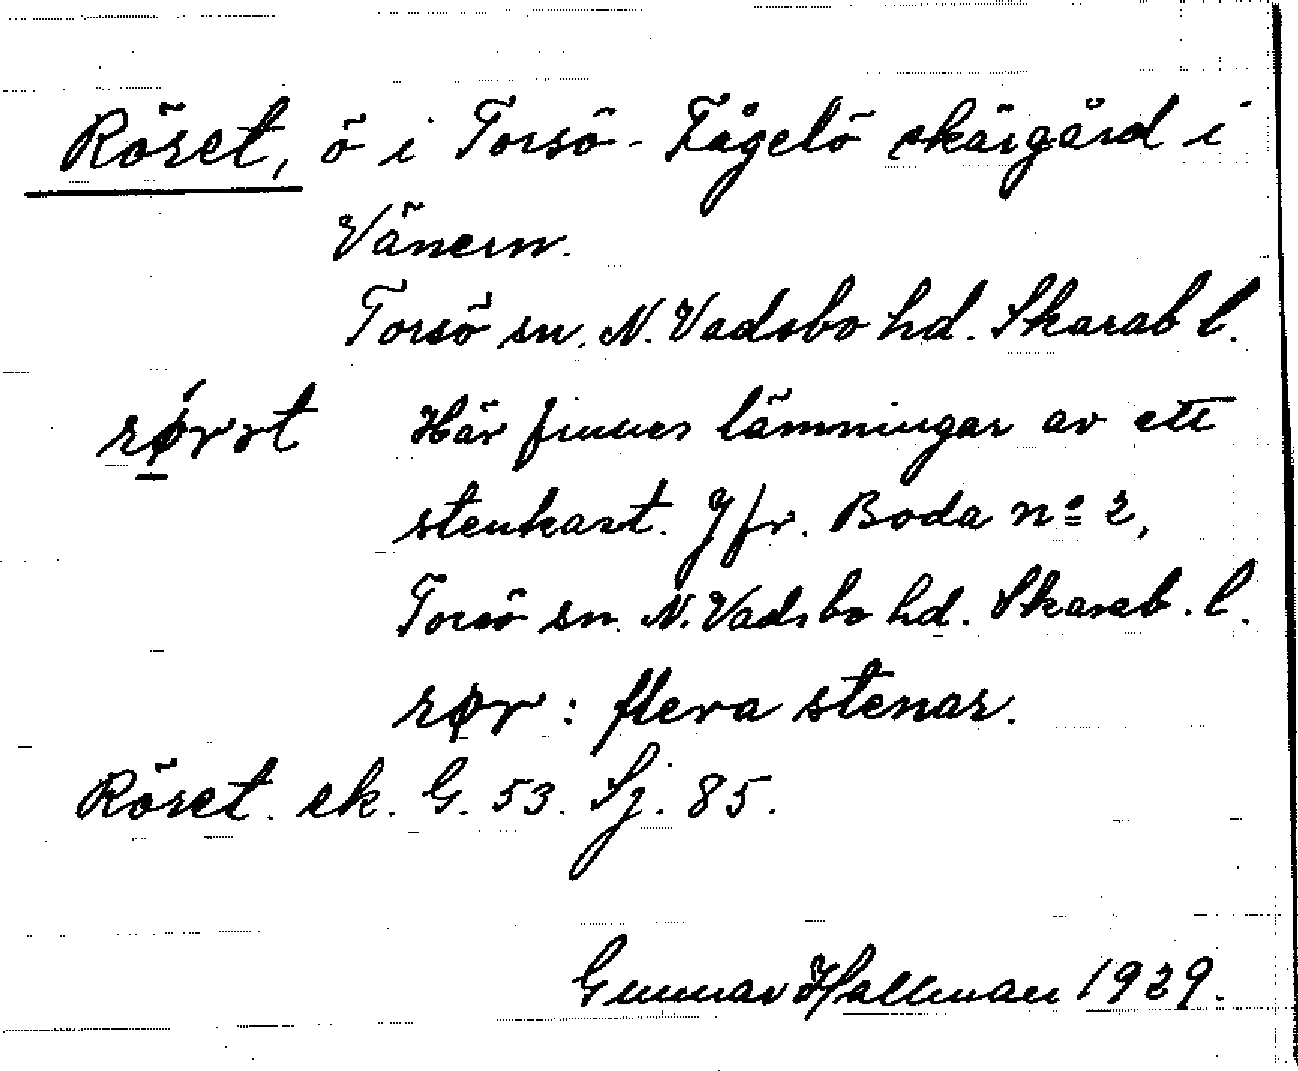 Röset, ö i Torsö-Fågelö skärgård i
Vänern.
Torsö sn. N. Vadsbo hd. Skarab l.
Här finnes lämningar av ett
stenkast. Jfr. Boda nº 2,
Torsö sn. N. Vadsbo hd. Skarab. l.
rør : flera stenar.
Röset. ek. G. 53. Sj. 85.
Gunnar Hallman 1929.